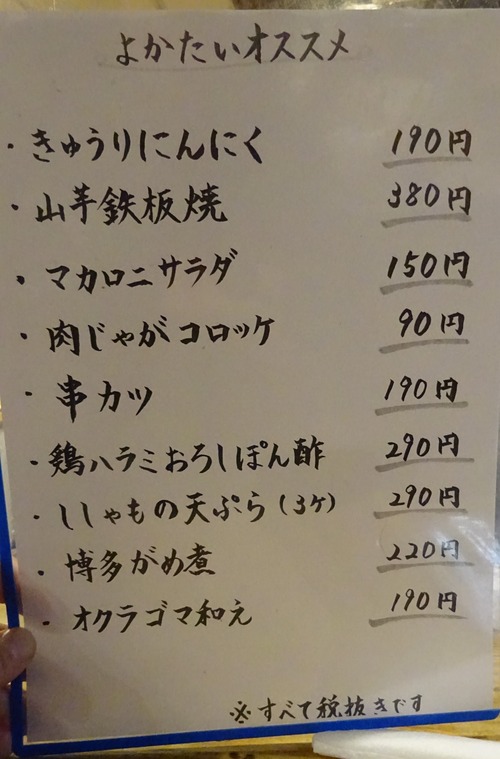 よかたいオススメ
・きゅうりにんにく 190円
・山芋鉄板焼 380円
・マカロニサラダ 150円
・肉じゃがコロッケ 90円
・串カツ 190円
・鶏ハラミおろしぽん酢 290円
・ししゃもの天ぷら(3ケ) 290円
・博多がめ煮 220円
・オクラゴマ和え 190円
※すべて税抜きです